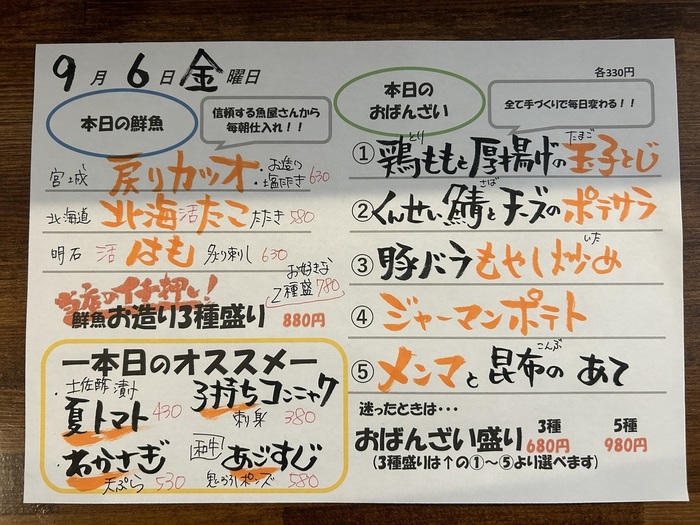 9月6日金曜日
本日の鮮魚
信頼する魚屋さんから
毎朝仕入れ！！
宮城 戻りカツオ ・お造り ・塩たたき 630
北海道 北海活たこ たたき 580
明石 活 はも 炙り刺し 630
お好きな
2種盛 780
当店のイチ押し！
鮮魚お造り3種盛り 880円
ー本日のオススメー
・土佐酢漬け
夏トマト 430
子持ちコンニャク
刺身 380
・わかさぎ
天ぷら 530
和牛！ あごすじ
鬼おろしポンズ 580
各330円
本日の
おばんざい
全て手づくりで毎日変わる！！
とり たまご
①鶏ももと厚揚げの玉子とじ
さば
②くんせい鯖とチーズのポテサラ
いた
③豚バラもやし炒め
④ジャーマンポテト
こんぶ
⑤メンマと昆布のあて
迷ったときは・・・
3種 5種
おばんざい盛り 680円 980円
(3種盛りは↑の①～⑤より選べます)